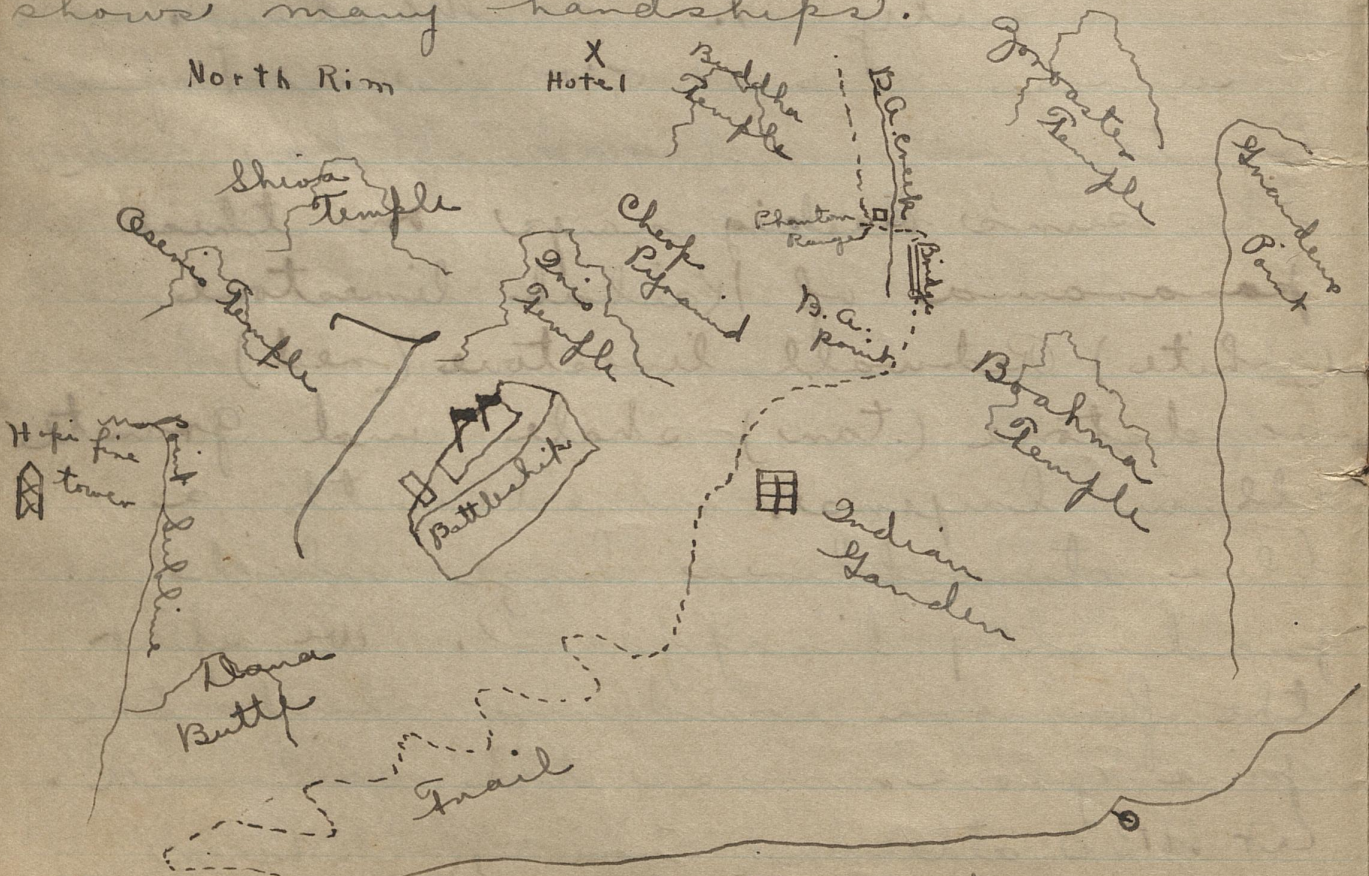 shows many hardships.
North Rim
X
Hotel
Buddha
Temple
B.A. Creek
Zoroaster
Temple
Grandeur
Point
Shiva
Temple
Oseris
Temple
Isis
Temple
Cheop
Pyramid
Phantom
Bridge
B. A.
Point
Brahma
Temple
Hopi fire
tower
Point
Sublime
Battleship
Indian
Garden
Dana
Butte
Trail